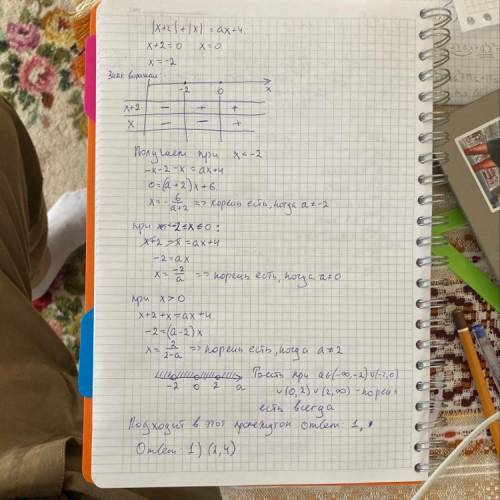 |x+2|+|x| = ax+4.
x+2=0 x=0
x=-2
Знак выражен.:
-2 0 x
x+2 − + +
x − − +
Получаем при x<-2
-x-2-x = ax+4
0=(a+2)x+6
x=-6/(a+2) => корень есть, когда a≠-2
при -2≤x≤0:
x+2-x = ax+4
-2=ax
x=-2/a => корень есть, когда a≠0
при x>0
x+2+x=ax+4
-2=(a-2)x
x=2/(2-a) => корень есть, когда a≠2
-2 0 2 a То есть при a∈(-∞,-2)∪(-2,0)
∪(0,2)∪(2,∞) - корень
есть всегда
Подходит в этот промежуток ответ: 1,
Ответ: 1) (2,4)